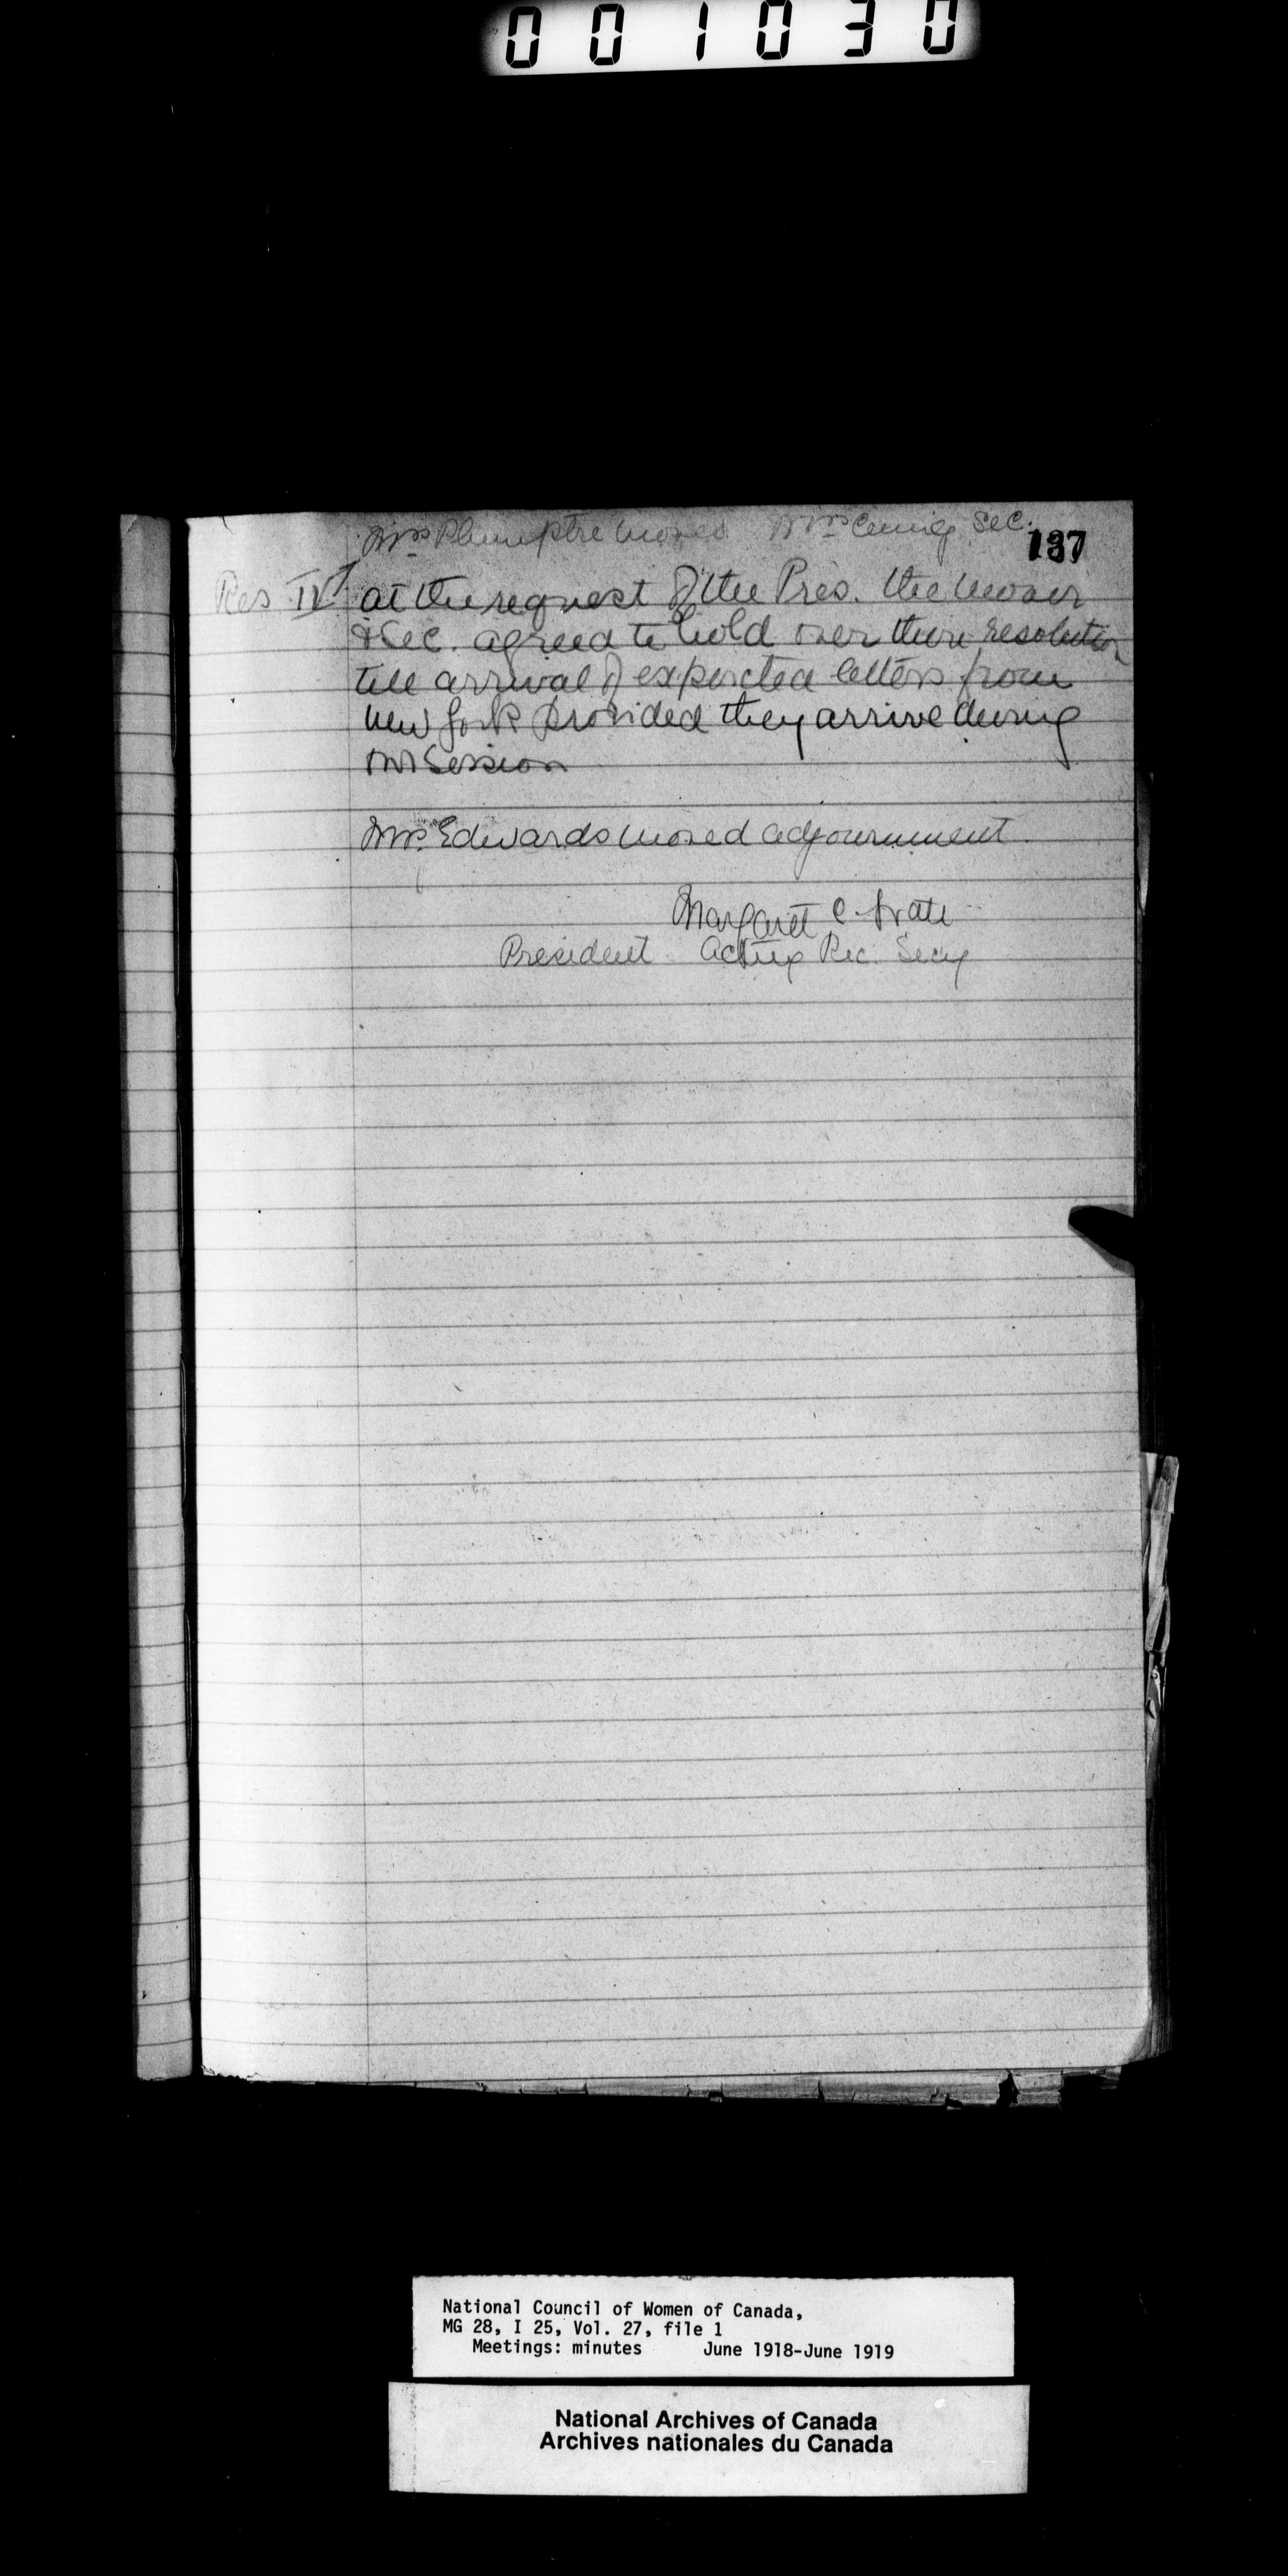 001030
Mrs Plumptre moved Mrs Cumings Sec.
137
Res IV at the request of the Pres. the mover
& Sec. agreed to hold over their resolution
till arrival of expected letters from
New York provided they arrive during
our Session
Mrs. Edwards moved adjournment.
Margaret C.
President Acting Rec. Secy
National Council of Women of Canada,
MG 28, I 25, Vol. 27, file 1
Meetings: minutes June 1918-June 1919
National Archives of Canada
Archives nationales du Canada